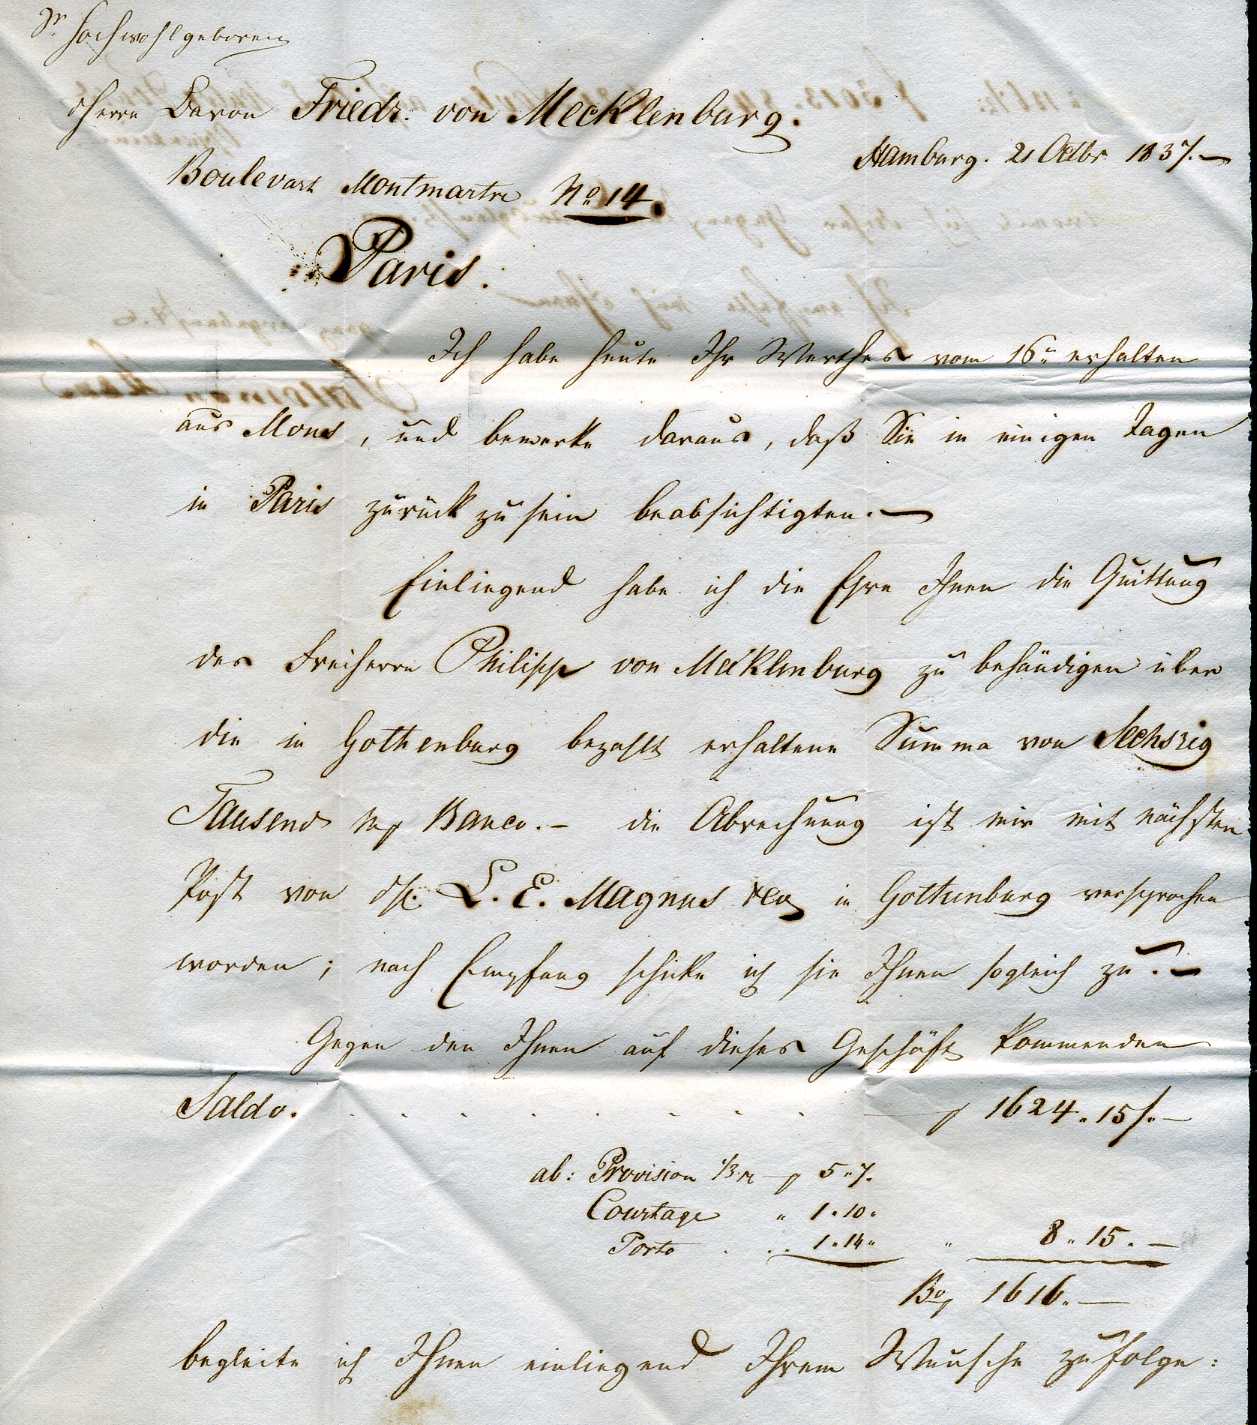 Sr. Hochwohlgeboren
Herrn Baron Friedr. von Mecklenburg.
Hamburg. 21 Octbr 1837.—
Boulevart Montmartre No 14.
Paris.
Ich habe heute Ihr Werthes vom 16n erhalten
aus Mons, und bemerke daraus, daß Sie in einigen Tagen
in Paris zurück zu sein beabsichtigten.—
Einliegend habe ich die Ehre Ihnen die Quittung
des Freiherrn Philipp von Mecklenburg zu behändigen über
die in Gothenburg bezahlt erhaltene Summa von Sechszig
Tausend Mk Banco.— die Abrechnung ist mir mit nächsten
Post von HH. L. E. Magnus & Co in Gothenburg versprochen
worden; nach Empfang schicke ich sie Ihnen sogleich zu.—
Gegen den Ihnen auf dieses Geschäft kommenden
Saldo. . . . . . . . . 1624.15ß.—
ab: Provision 1/3 % 5.7.
Courtage " 1.10.
Porto . . . 1.14. " 8.15.—
Bco 1616.—
begleite ich Ihnen einliegend Ihrem Wunsche zufolge: